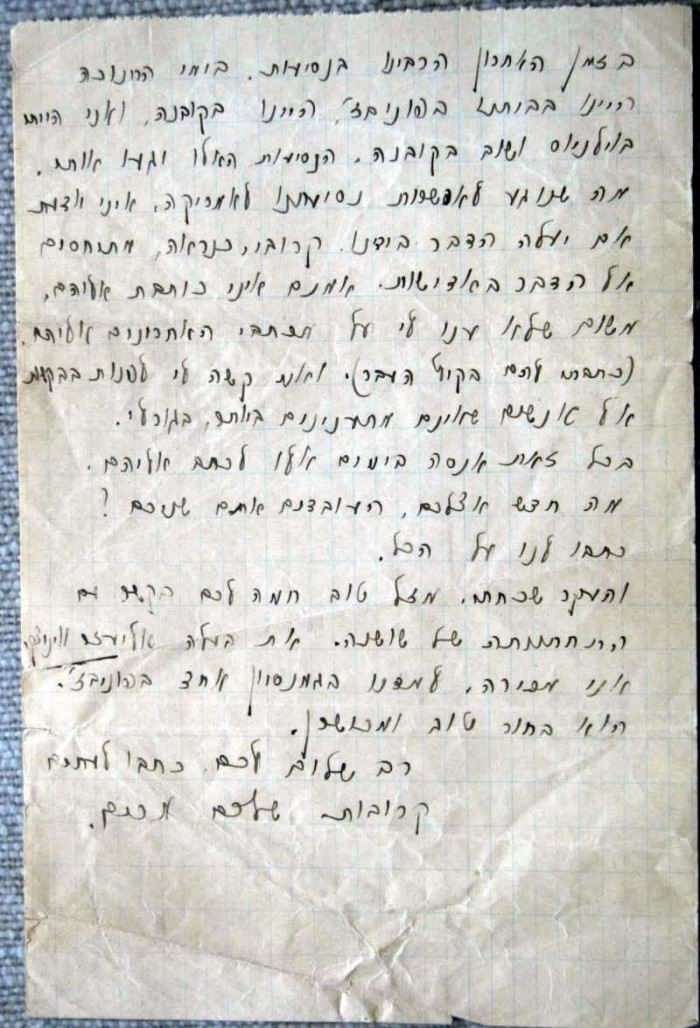 בזמן האחרון הרבינו בנסיעות. בימי החנוכה
היינו בביתנו בפוניבז', היינו בקובנה, ואני הייתי
בוילניוס ושוב בקובנה. הנסיעות האלו יגעו אותי.
מה שנוגע לאפשרות נסיעתנו לאמריקה, איני יודעת
אם יעלה הדבר בידנו. קרובי, כנראה, מתיחסים
אל הדבר באדישות. אומנם איני כותבת אליהם,
משום שלא ענו לי על מכתבי האחרונים אליהם.
(כתבתי להם בקיץ העבר). ואת קשה לי לפנות בבקשות
אל אנשים שאינם מתענינים ביותר, בגורלי.
בכל זאת אנסה בימים אלו לכתב אליהם.
מה חדש אצלכם, העובדים אתם שניכם?
כתבו לנו על הכל.
והעקר שכחתי. מזל טוב חמה לכם בקשר עם
התחתנותה של שושנה. את בעלה אליעזר
אני מכירה. למדנו בגמנסיון אחד בפוניבז'.
הוא בחור טוב ומוכשר.
רב שלום לכם. כתבו לעתים
קרובות שלכם